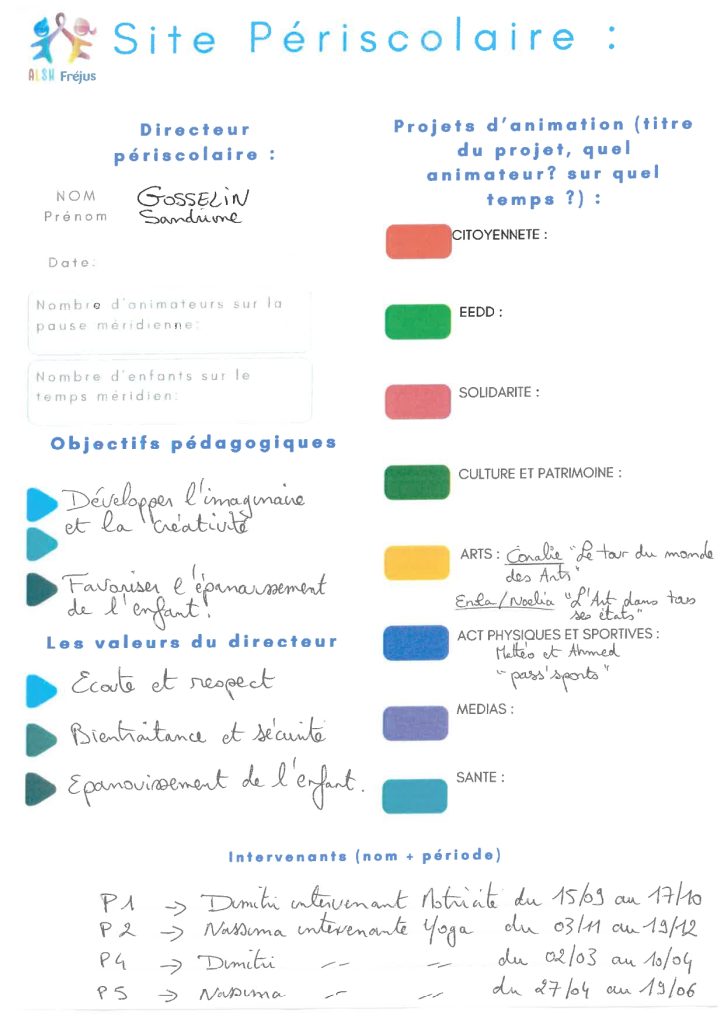 Site Périscolaire :
ALSH Fréjus
Directeur
périscolaire :
NOM
Prénom
GOSSELIN
Sandrine
Date:
Nombre d'animateurs sur la
pause méridienne:
Nombre d'enfants sur le
temps méridien:
Objectifs pédagogiques
Développer l'imaginaire
et la créativité
Favoriser l'épanouissement
de l'enfant!
Les valeurs du directeur
Ecoute et respect
Bientraitance et sécurité
Epanouissement de l'enfant.
Projets d'animation (titre
du projet, quel
animateur? sur quel
temps ?) :
CITOYENNETE :
EEDD :
SOLIDARITE :
CULTURE ET PATRIMOINE :
ARTS : Coralie "Le tour du monde
des Arts"
Enza/Noelia "L'Art dans tous
ses états"
ACT PHYSIQUES ET SPORTIVES :
Mattéo et Ahmed
"pass'sports"
MEDIAS :
SANTE :
Intervenants (nom + période)
P1 -> Dimitri intervenant Motricité du 15/09 au 17/10
P2 -> Nassima intervenante Yoga du 03/11 au 19/12
P4 -> Dimitri -- -- du 02/03 au 10/04
P5 -> Nassima -- -- du 27/04 au 19/06